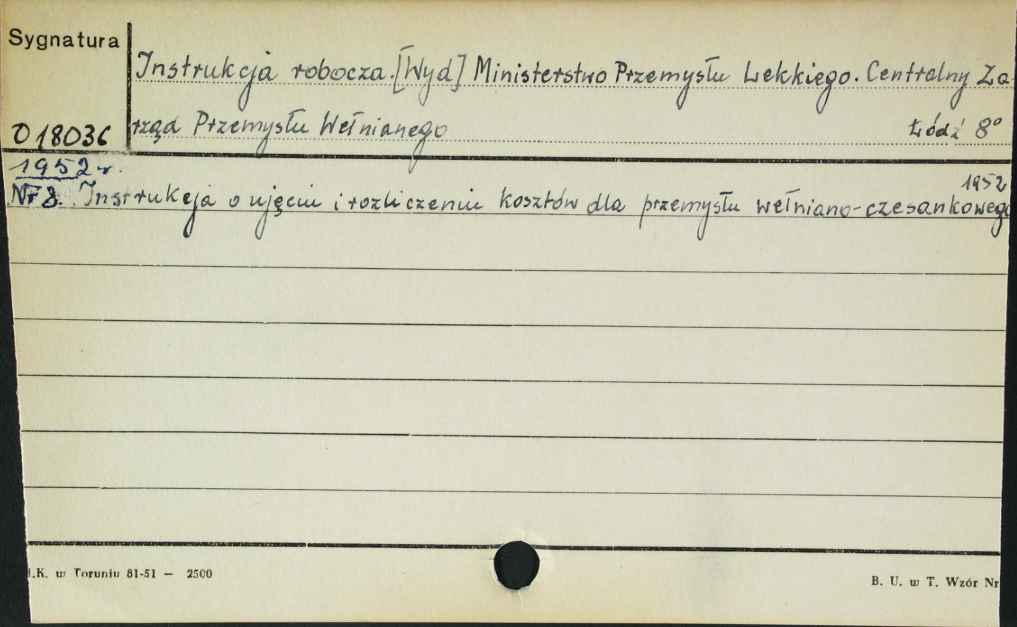 Sygnatura
Instrukcja robocza. [Wyd] Ministerstwo Przemysłu Lekkiego. Centralny Za-
O 18036 rząd Przemysłu Wełnianego Łódź 8°
1952 r. 1952
Nr 8. Instrukcja o ujęciu i rozliczeniu kosztów dla przemysłu wełniano-czesankowego
.K. w Toruniu 81-51 — 2500 B. U. w T. Wzór Nr